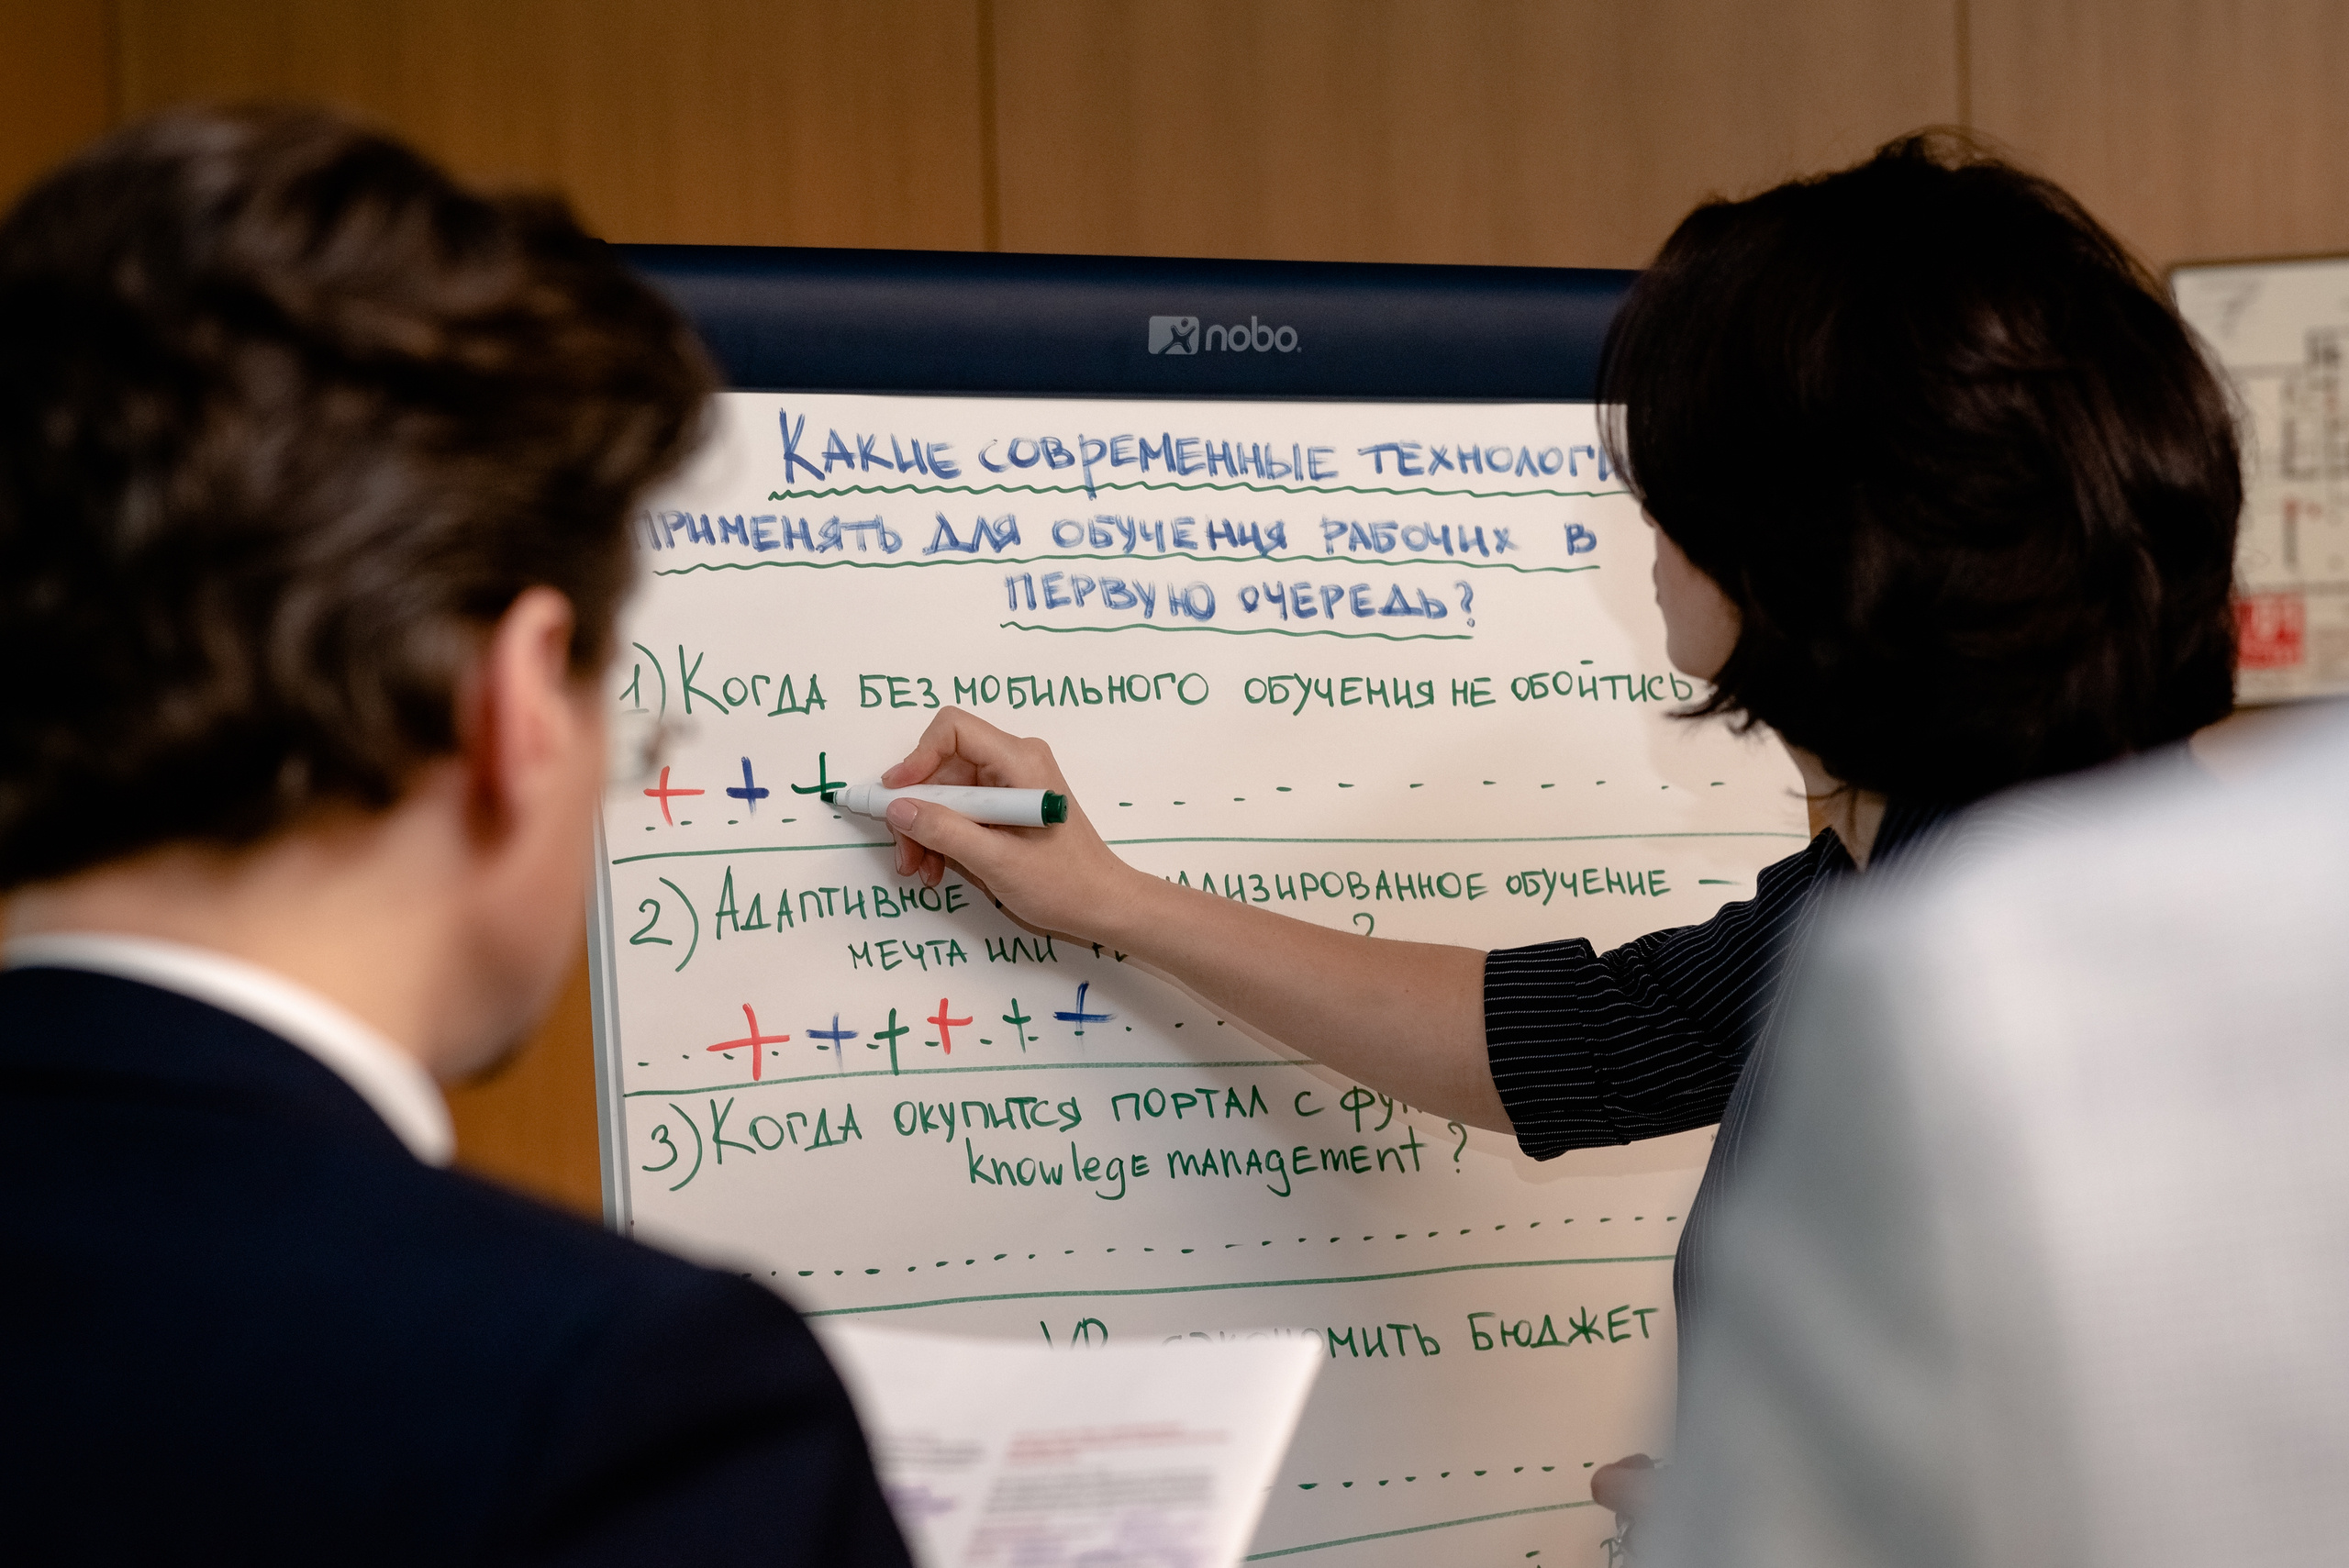 nobo
Какие современные
применять для обучения рабочих в
первую очередь?
1) Когда без мобильного обучения не обойтись
+ + +
2) Адаптивное обучение —
мечта или ?
+ + + + + +
3) Когда окупится портал с
knowlege management ?
VR бюджет